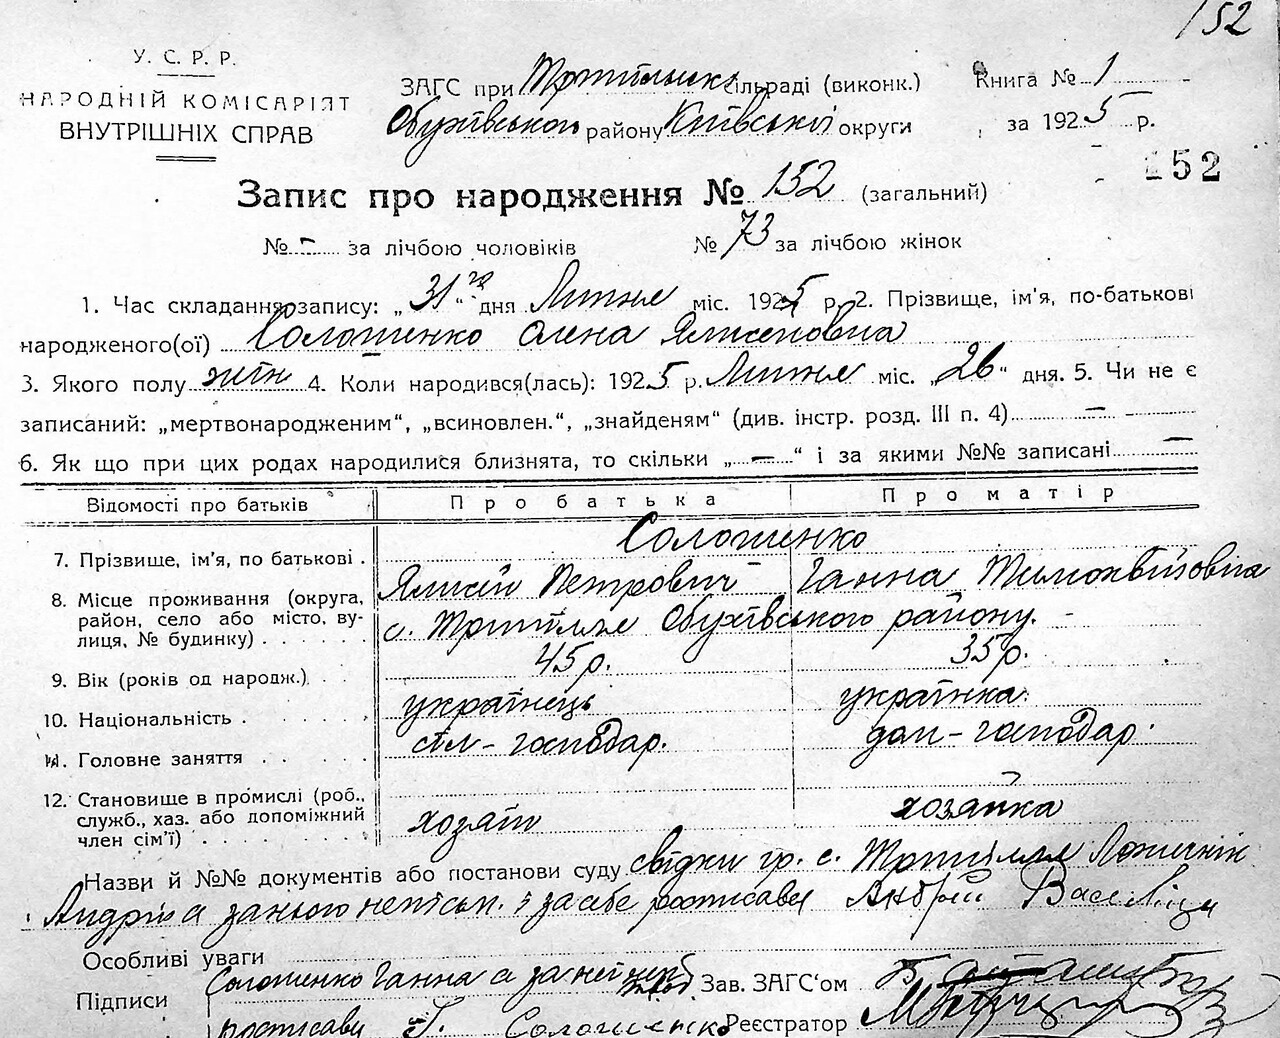 152
У. С. Р. Р.
НАРОДНІЙ КОМІСАРІЯТ
ВНУТРІШНІХ СПРАВ
ЗАГС при Трипільск. сільраді (виконк.)
Обухівського району Київської округи
Книга № 1
за 1925 р.
152
Запис про народження № 152 (загальний)
№ – за лічбою чоловіків № 73 за лічбою жінок
1. Час складання запису: „31го“ дня Липня міс. 1925 р. 2. Прізвище, ім'я, по-батькові
народженого(ої) Солошенко Олена Ялисеповна
3. Якого полу жін 4. Коли народився(лась): 1925 р. Липня міс. „26“ дня. 5. Чи не є
записаний: „мертвонародженим“, „всиновлен.“, „знайденям“ (див. інстр. розд. III п. 4) –
6. Як що при цих родах народилися близнята, то скільки „–“ і за якими №№ записані –
Відомості про батьків Про батька Про матір
Солошенко
7. Прізвище, ім'я, по батькові . Ялисій Петрович Ганна Тимохвіївовна
8. Місце проживання (округа, район, село або місто, вулиця, № будинку) . . . . с. Трипілля Обухівського району.
9. Вік (років од народж.) . . 45 р. 35 р.
10. Національність . . . . . . українець українка
11. Головне заняття . . . . . сіл-господар. дом-господар.
12. Становище в промислі (роб., служб., хаз. або допоміжний член сім'ї) . . . . . . . . хозяїн хозяйка
Назви й №№ документів або постанови суду свідки гр. с. Трипілля
Андрій а за нього непісьм. і за себе росписався Андрій
Особливі уваги
Підписи Солошенко Ганна а за неї Зав. ЗАГС'ом
росписався Г. Солошенко Реєстратор